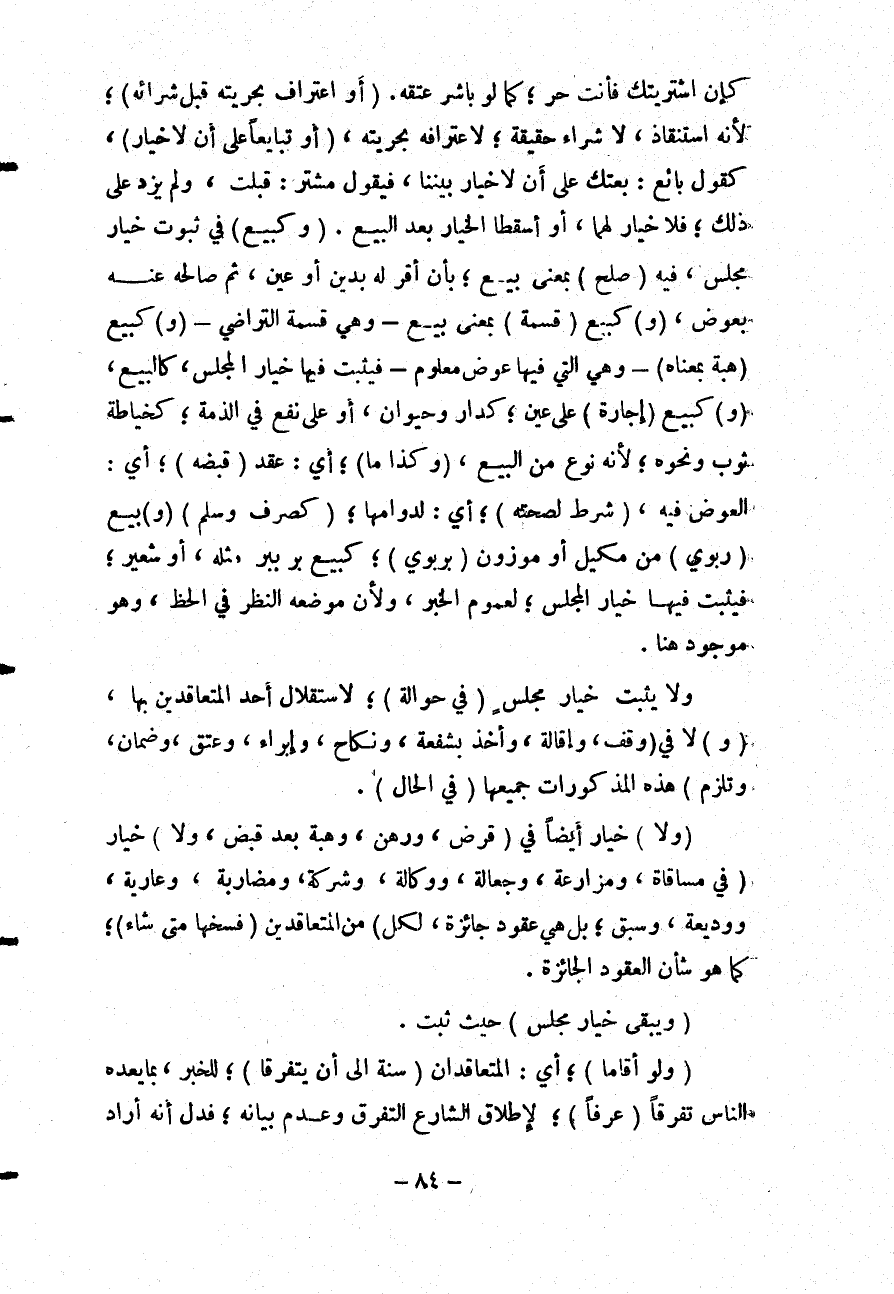 كإن اشتريتك فأنت حر ؛ كما لو باشر عتقه. ( أو اعتراف بحريته قبل شرائه) ؛
لأنه استنقاذ ، لا شراء حقيقة ؛ لاعترافه بحريته ، ( أو تبايعا على أن لا خيار) ،
كقول بائع : بعتك على أن لاخيار بيننا ، فيقول مشتر : قبلت ، ولم يزد على
ذلك ؛ فلا خيار لهما ، أو أسقطا الخيار بعد البيع . ( وكبيع) في ثبوت خيار
مجلس ، فيه ( صلح ) بمعنى بيع ؛ بأن أقر له بدين أو عين ، ثم صالحه عنه
بعوض ، (و) كبيع ( قسمة ) بمعنى بيع – وهي قسمة التراضي – (و) كبيع
(هبة بمعناه) – وهي التي فيها عوض معلوم – فيثبت فيها خيار المجلس ، كالبيع ،
(و) كبيع (إجارة ) على عين ؛ كدار وحيوان ، أو على نفع في الذمة ؛ كخياطة
ثوب ونحوه ؛ لأنه نوع من البيع ، (وكذا ما) ؛ أي : عقد ( قبضه ) ؛ أي :
العوض فيه ، ( شرط لصحته ) ؛ أي : لدوامها ؛ ( كصرف وسلم ) (و) بيع
( ربوي ) من مكيل أو موزون ( بربوي ) ؛ كبيع بر ببر مثله ، أو شعير ؛
فيثبت فيها خيار المجلس ؛ لعموم الخبر ، ولأن موضعه النظر في الحظ ، وهو
موجود هنا .
ولا يثبت خيار مجلسٍ ( في حوالة ) ؛ لاستقلال أحد المتعاقدين بها ،
( و ) لا في (وقف ، وإقالة ، وأخذ بشفعة ، ونكاح ، وإبراء ، وعتق ، وضمان ،
وتلزم ) هذه المذكورات جميعها ( في الحال ) .
(ولا ) خيار أيضاً في ( قرض ، ورهن ، وهبة بعد قبض ، ولا ) خيار
( في مساقاة ، ومزارعة ، وجعالة ، ووكالة ، وشركة ، ومضاربة ، وعارية ،
ووديعة ، وسبق ؛ بل هي عقود جائزة ، لكل) من المتعاقدين ( فسخها متى شاء) ؛
كما هو شأن العقود الجائزة .
( ويبقى خيار مجلس ) حيث ثبت .
( ولو أقاما ) ؛ أي : المتعاقدان ( سنة الى أن يتفرقا ) ؛ للخبر ، بما يعده
الناس تفرقاً ( عرفاً ) ؛ لإطلاق الشارع التفرق وعدم بيانه ؛ فدل أنه أراد
– ٨٤ –